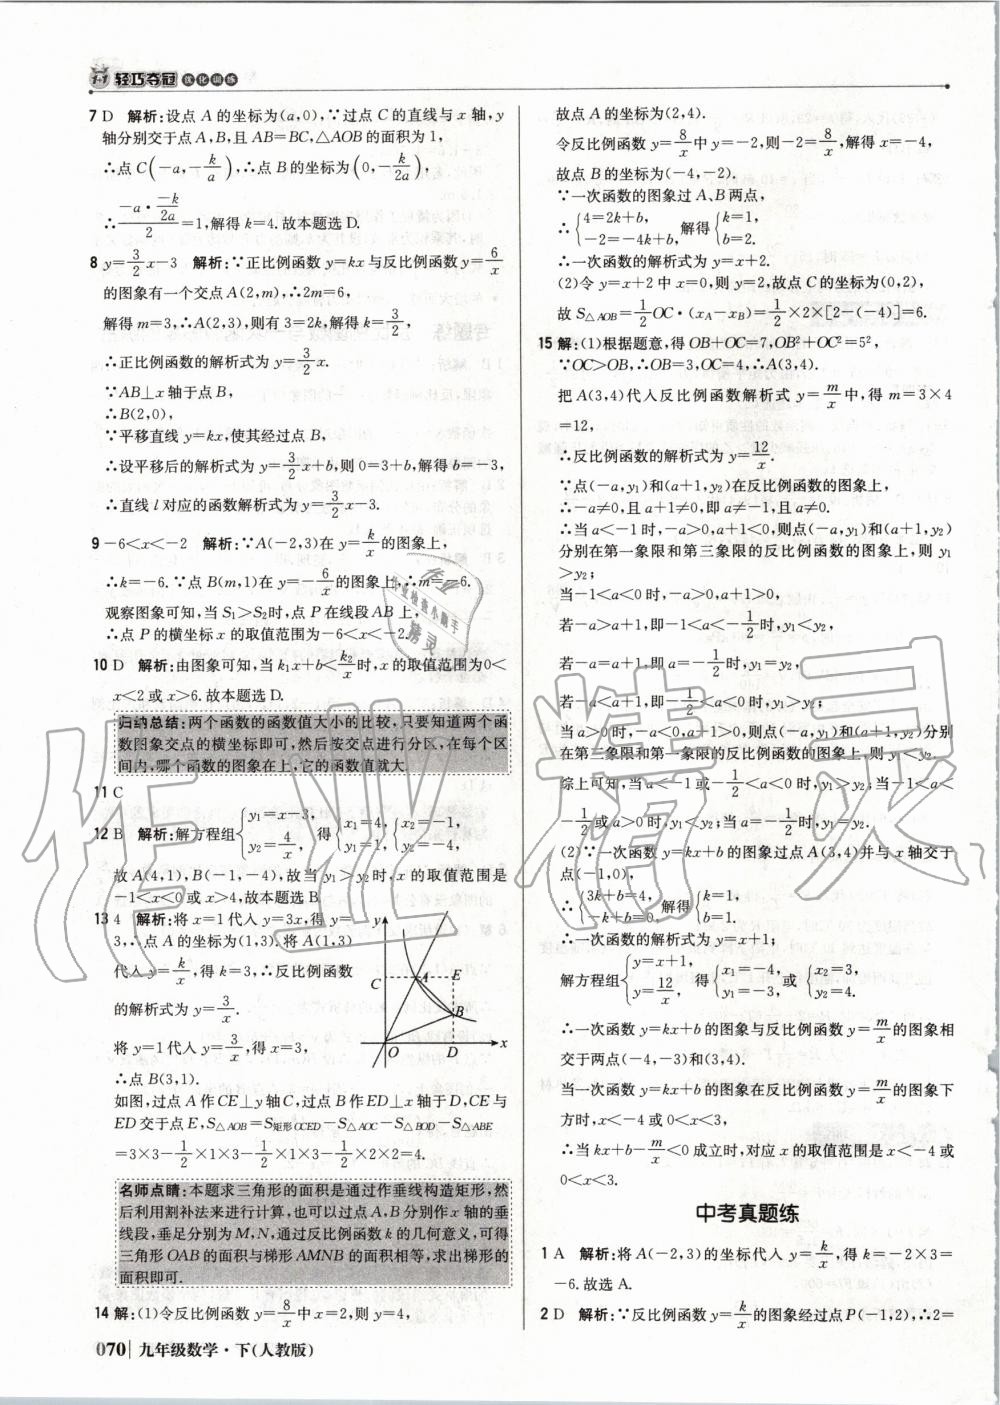 1+1 轻巧夺冠 优化训练
7 D 解析:设点 A 的坐标为(a,0),∵过点 C 的直线与 x 轴,y
轴分别交于点 A,B,且 AB=BC,△AOB的面积为1,
∴点 C(-a,-k/a),∴点 B 的坐标为(0,-k/2a),
∴(-a·(-k/2a))/2=1,解得 k=4.故本题选 D.
8 y=3/2x-3 解析:∵正比例函数 y=kx 与反比例函数 y=6/x
的图象有一个交点 A(2,m),∴2m=6,
解得 m=3,∴A(2,3),则有 3=2k,解得 k=3/2,
∴正比例函数的解析式为 y=3/2x.
∵AB⊥x 轴于点 B,
∴B(2,0),
∵平移直线 y=kx,使其经过点 B,
∴设平移后的解析式为 y=3/2x+b,则 0=3+b,解得 b=-3,
∴直线 l 对应的函数解析式为 y=3/2x-3.
9 -6<x<-2 解析:∵A(-2,3)在 y=k/x 的图象上,
∴k=-6.∵点 B(m,1)在 y=-6/x 的图象上,∴m=-6.
观察图象可知,当 S₁>S₂时,点 P 在线段 AB 上,
∴点 P 的横坐标 x 的取值范围为-6<x<-2.
10 D 解析:由图象可知,当 k₁x+b<k₂/x时,x 的取值范围为0<
x<2或 x>6.故本题选 D.
归纳总结:两个函数的函数值大小的比较,只要知道两个函
数图象交点的横坐标即可,然后按交点进行分区,在每个区
间内,哪个函数的图象在上,它的函数值就大.
11 C
12 B 解析:解方程组{y₁=x-3, y₂=4/x, 得{x₁=4, y₁=1,{x₂=-1, y₂=-4,
故 A(4,1),B(-1,-4),故当 y₁>y₂时,x 的取值范围是
-1<x<0或 x>4,故本题选 B
13 4 解析:将 x=1代入 y=3x,得 y=
3,∴点 A 的坐标为(1,3).将 A(1,3)
代入 y=k/x,得 k=3,∴反比例函数
的解析式为 y=3/x.
将 y=1代入 y=3/x,得 x=3,
∴点 B(3,1).
y
C A E
B
O D x
如图,过点 A 作CE⊥y 轴C,过点 B 作ED⊥x 轴于 D,CE与
ED交于点 E,S△AOB=S矩形OCED-S△AOC-S△BOD-S△ABE
=3×3-1/2×1×3-1/2×3×1-1/2×2×2=4.
名师点睛:本题求三角形的面积是通过作垂线构造矩形,然
后利用割补法来进行计算,也可以过点 A,B 分别作 x 轴的垂
线段,垂足分别为 M,N,通过反比例函数 k 的几何意义,可得
三角形 OAB 的面积与梯形 AMNB 的面积相等,求出梯形的
面积即可.
14 解:(1)令反比例函数 y=8/x中 x=2,则 y=4,
070 九年级数学·下(人教版)
故点 A 的坐标为(2,4).
令反比例函数 y=8/x中 y=-2,则-2=8/x,解得 x=-4,
故点 B 的坐标为(-4,-2).
∵一次函数的图象过 A、B 两点,
∴{4=2k+b, -2=-4k+b, 解得{k=1, b=2.
∴一次函数的解析式为 y=x+2.
(2)令 y=x+2中 x=0,则 y=2,故点 C 的坐标为(0,2),
故 S△AOB=1/2OC·(xA-xB)=1/2×2×[2-(-4)]=6.
15 解:(1)根据题意,得 OB+OC=7,OB²+OC²=5²,
∵OC>OB,∴OB=3,OC=4,∴A(3,4).
把 A(3,4)代入反比例函数解析式 y=m/x 中,得 m=3×4
=12,
∴反比例函数的解析式为 y=12/x.
∵点(-a,y₁)和(a+1,y₂)在反比例函数的图象上,
∴-a≠0,且 a+1≠0,即 a≠-1,且 a≠0.
∴当 a<-1时,-a>0,a+1<0,则点(-a,y₁)和(a+1,y₂)
分别在第一象限和第三象限的反比例函数的图象上,则 y₁
>y₂;
当-1<a<0时,-a>0,a+1>0,
若-a>a+1,即-1<a<-1/2时,y₁<y₂,
若-a=a+1,即 a=-1/2时,y₁=y₂,
若-a<a+1,即-1/2<a<0时,y₁>y₂;
当 a>0时,-a<0,a+1>0,则点(-a,y₁)和(a+1,y₂)分别
在第三象限和第一象限的反比例函数的图象上,则 y₁<y₂.
综上可知,当 a<-1或-1/2<a<0时,y₁>y₂;当-1<a<
-1/2或 a>0时,y₁<y₂;当 a=-1/2时,y₁=y₂.
(2)∵一次函数 y=kx+b 的图象过点 A(3,4)并与 x 轴交于
点(-1,0),
∴{3k+b=4, -k+b=0, 解得{k=1, b=1.
∴一次函数的解析式为 y=x+1;
解方程组{y=x+1, y=12/x, 得{x₁=-4, y₁=-3, 或{x₂=3, y₂=4.
∴一次函数 y=kx+b 的图象与反比例函数 y=m/x的图象相
交于两点(-4,-3)和(3,4).
当一次函数 y=kx+b 的图象在反比例函数 y=m/x的图象下
方时,x<-4或0<x<3,
∴当 kx+b-m/x<0成立时,对应 x 的取值范围是 x<-4或
0<x<3.
中考真题练
1 A 解析:将 A(-2,3)的坐标代入 y=k/x,得 k=-2×3=
-6.故选 A.
2 D 解析:∵反比例函数 y=k/x的图象经过点 P(-1,2),∴2=
作业精灵